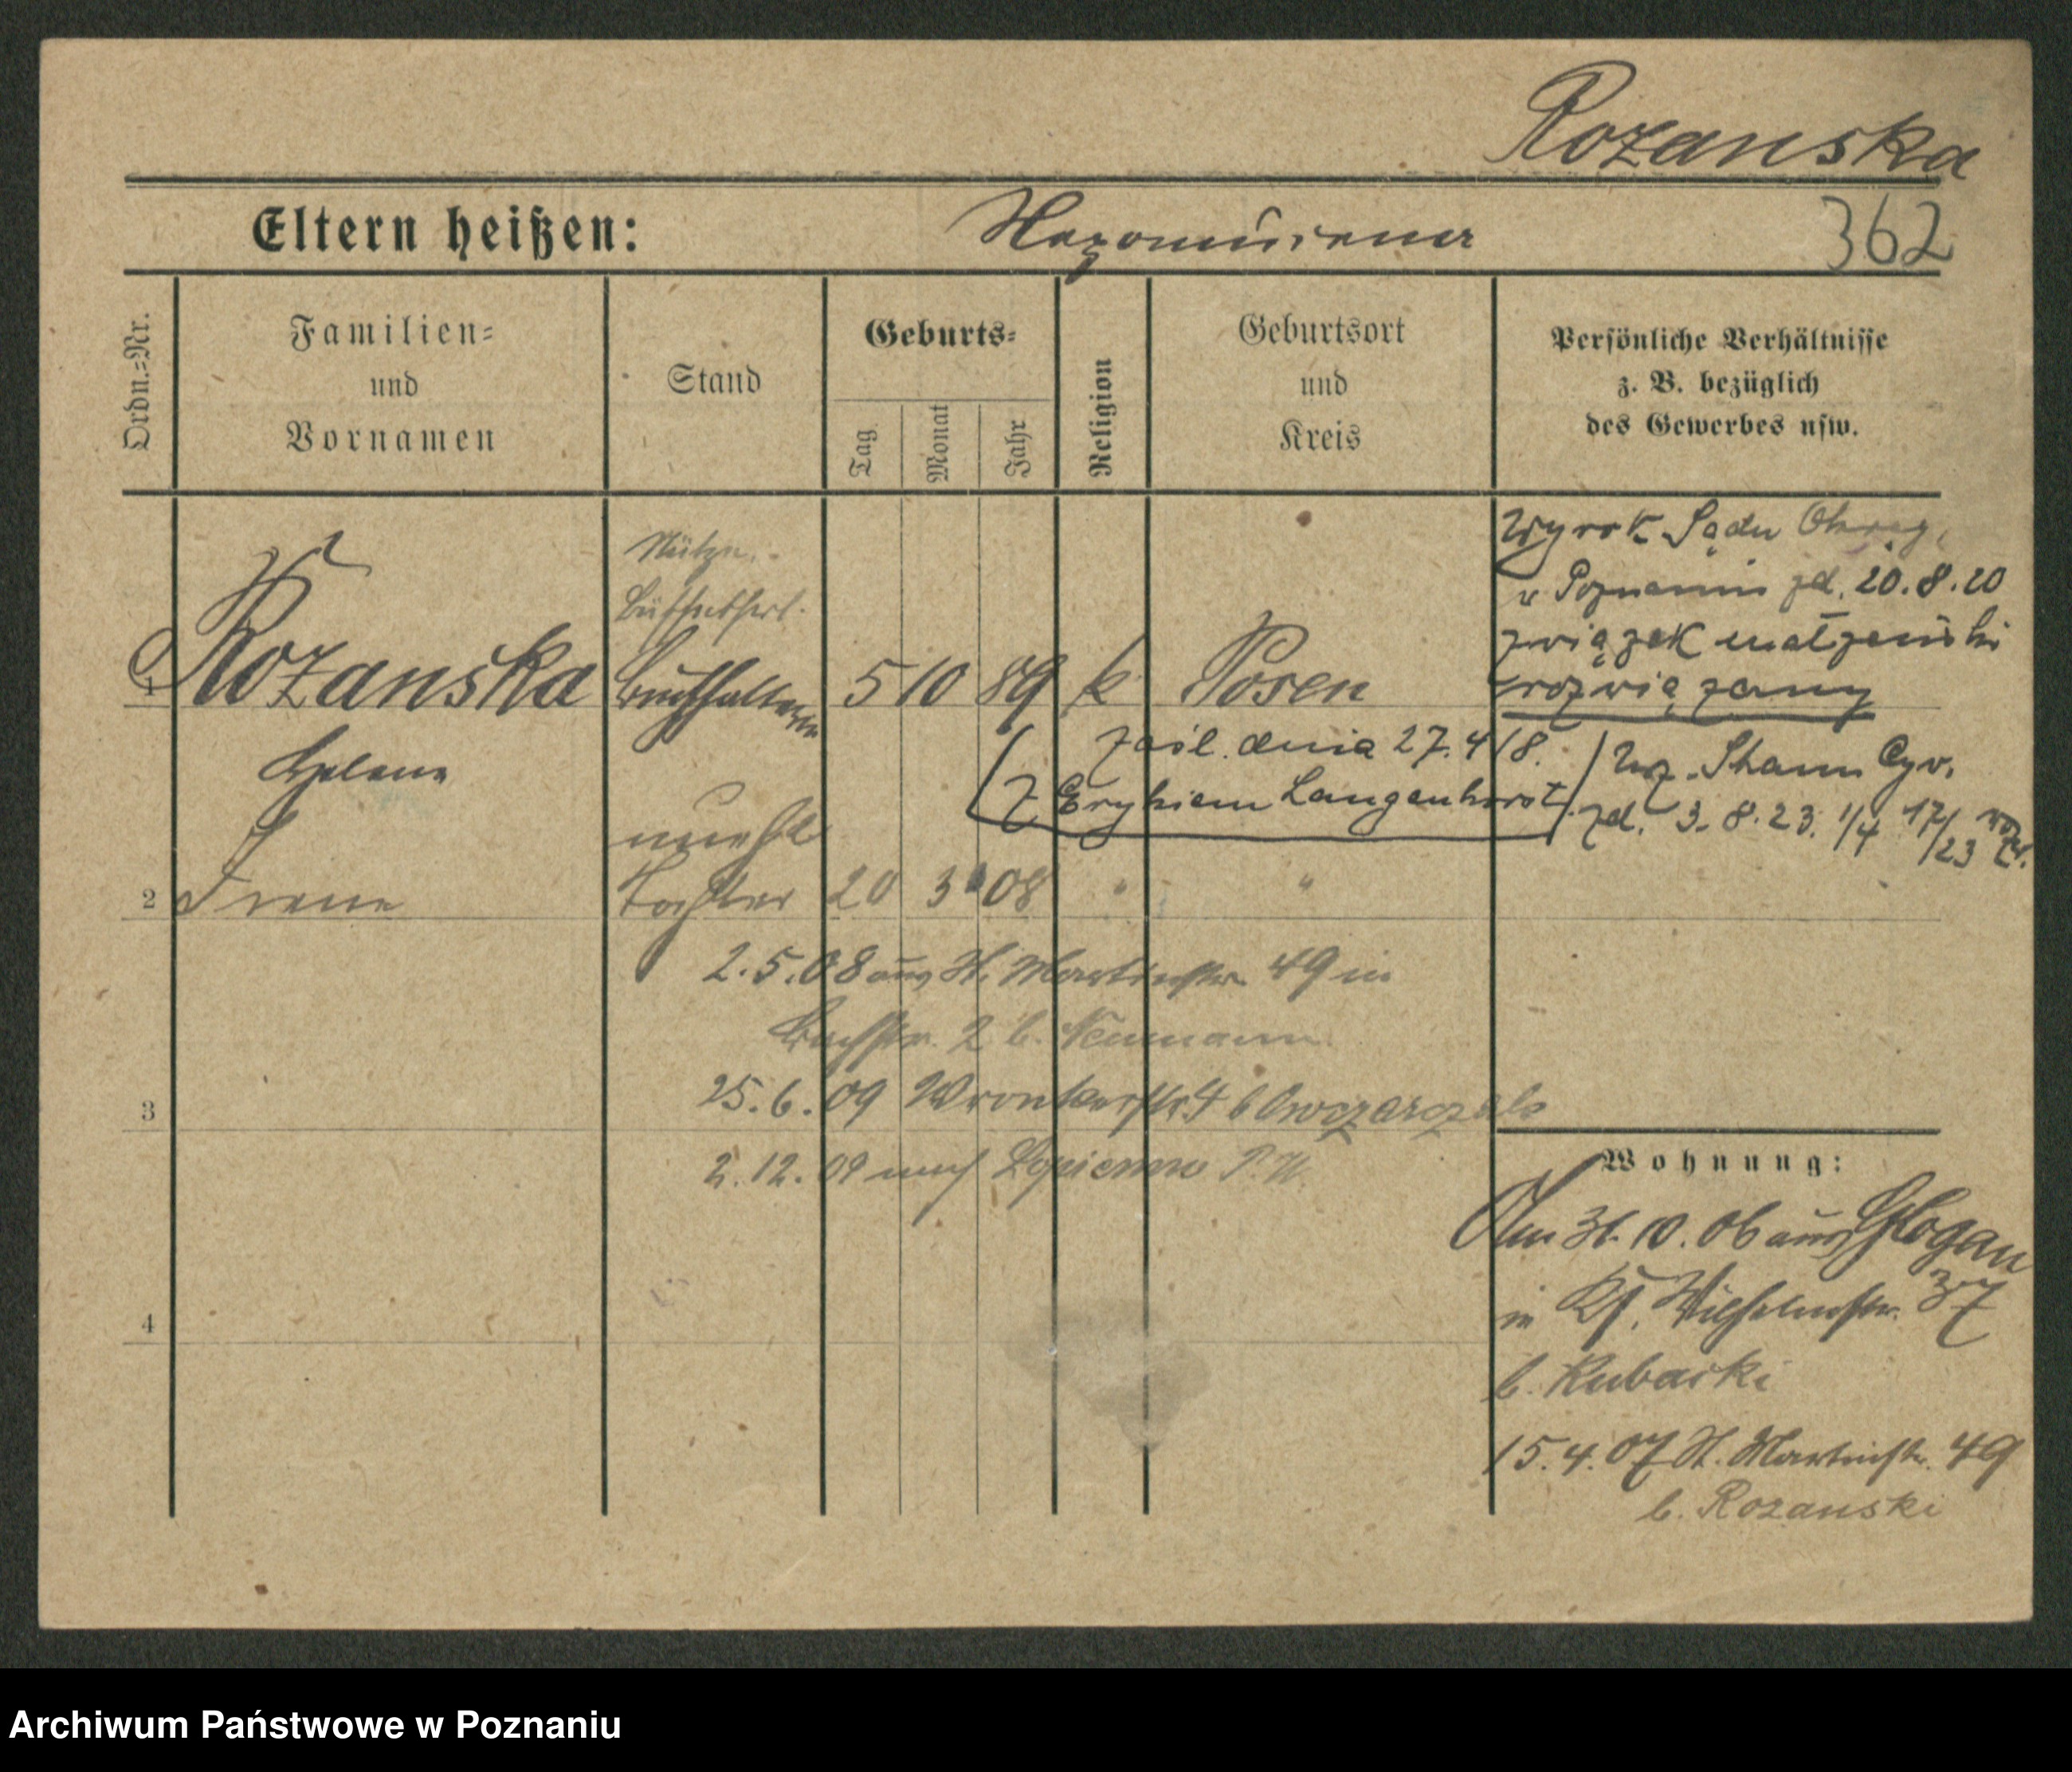 Rozanska
Eltern heißen:
362
Ordn.=Nr.
Familien=
und
Vornamen
Stand
Geburts=
Tag
Monat
Jahr
Religion
Geburtsort
und
Kreis
Persönliche Verhältnisse
z. B. bezüglich
des Gewerbes usw.
1
Rozanska
Helene
Buchhalterin
5 10 89 k Posen
Wyrok Sądu Okręg.
w Poznaniu zd. 20.8.20
związek małżeński
rozwiązany
zaśl. dnia 27.4.18.
z Erykiem Langenhorst.
Urz. Stanu Cyw.
zd. 3.8.23. 1/4 17/23
2
Irene
unehl
Tochter 20 3 08 " "
2.5.08 aus St. Martinstr. 49 in
Bachstr. 2 b. Neumann
25.6.09 Wronkerstr. 4 b Owczarczak
3
2.12.09 nach
4
Wohnung:
Am 31.10.06 aus Glogau
in Kg. Wilhelmstr. 37
b. Kubacki
15.4.07 St. Martinstr. 49
b. Rozanski
Archiwum Państwowe w Poznaniu